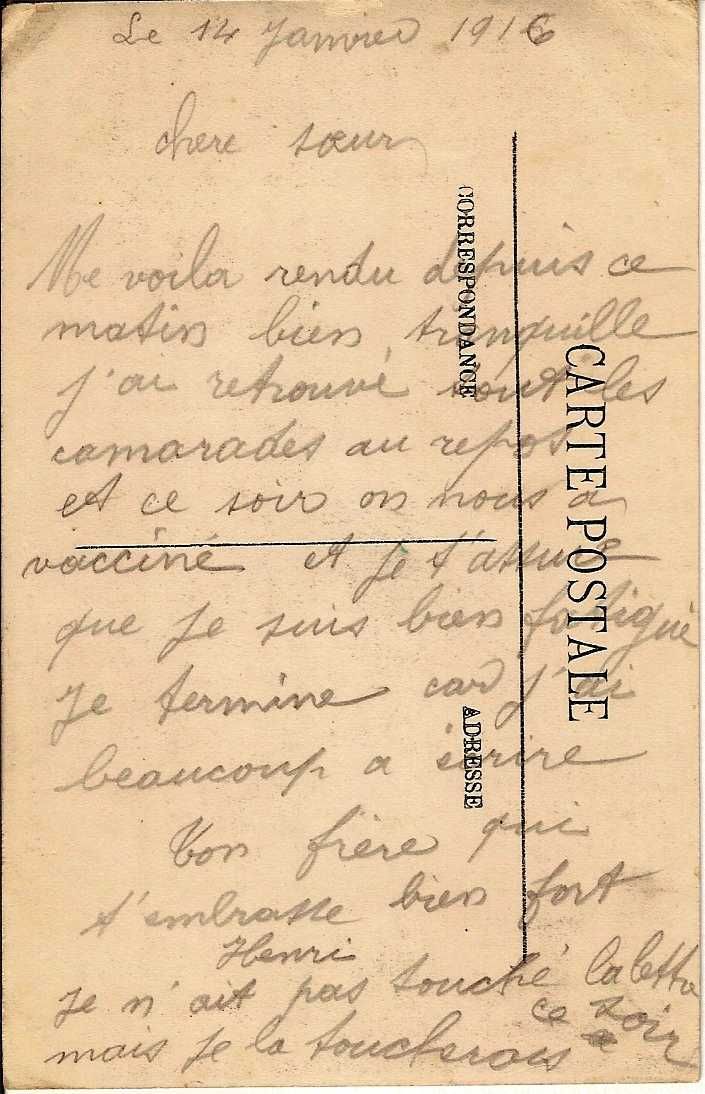 Le 14 Janvier 1916
chere sœur
Me voila rendu depuis ce
matin bien tranquille
j'ai retrouvé tout les
camarades au repos
et ce soir on nous a
vacciné et je t'assure
que je suis bien fatigué
Je termine car j'ai
beaucoup a écrire
Ton frère qui
t'embrasse bien fort
Henri
Je n'ait pas touché la lettre
mais je la toucherais ce soir
CORRESPONDANCE
ADRESSE
CARTE POSTALE